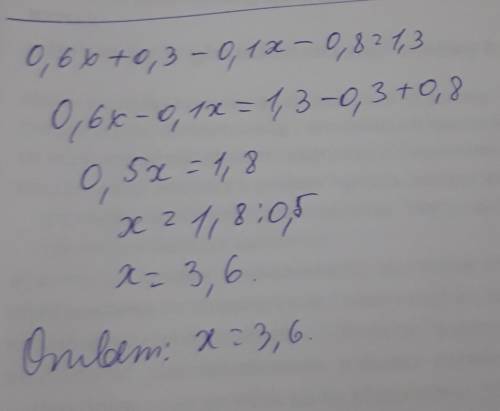 0,6x+0,3-0,1x-0,8=1,3
0,6x-0,1x=1,3-0,3+0,8
0,5x=1,8
x=1,8:0,5
x=3,6.
Ответ: x=3,6.